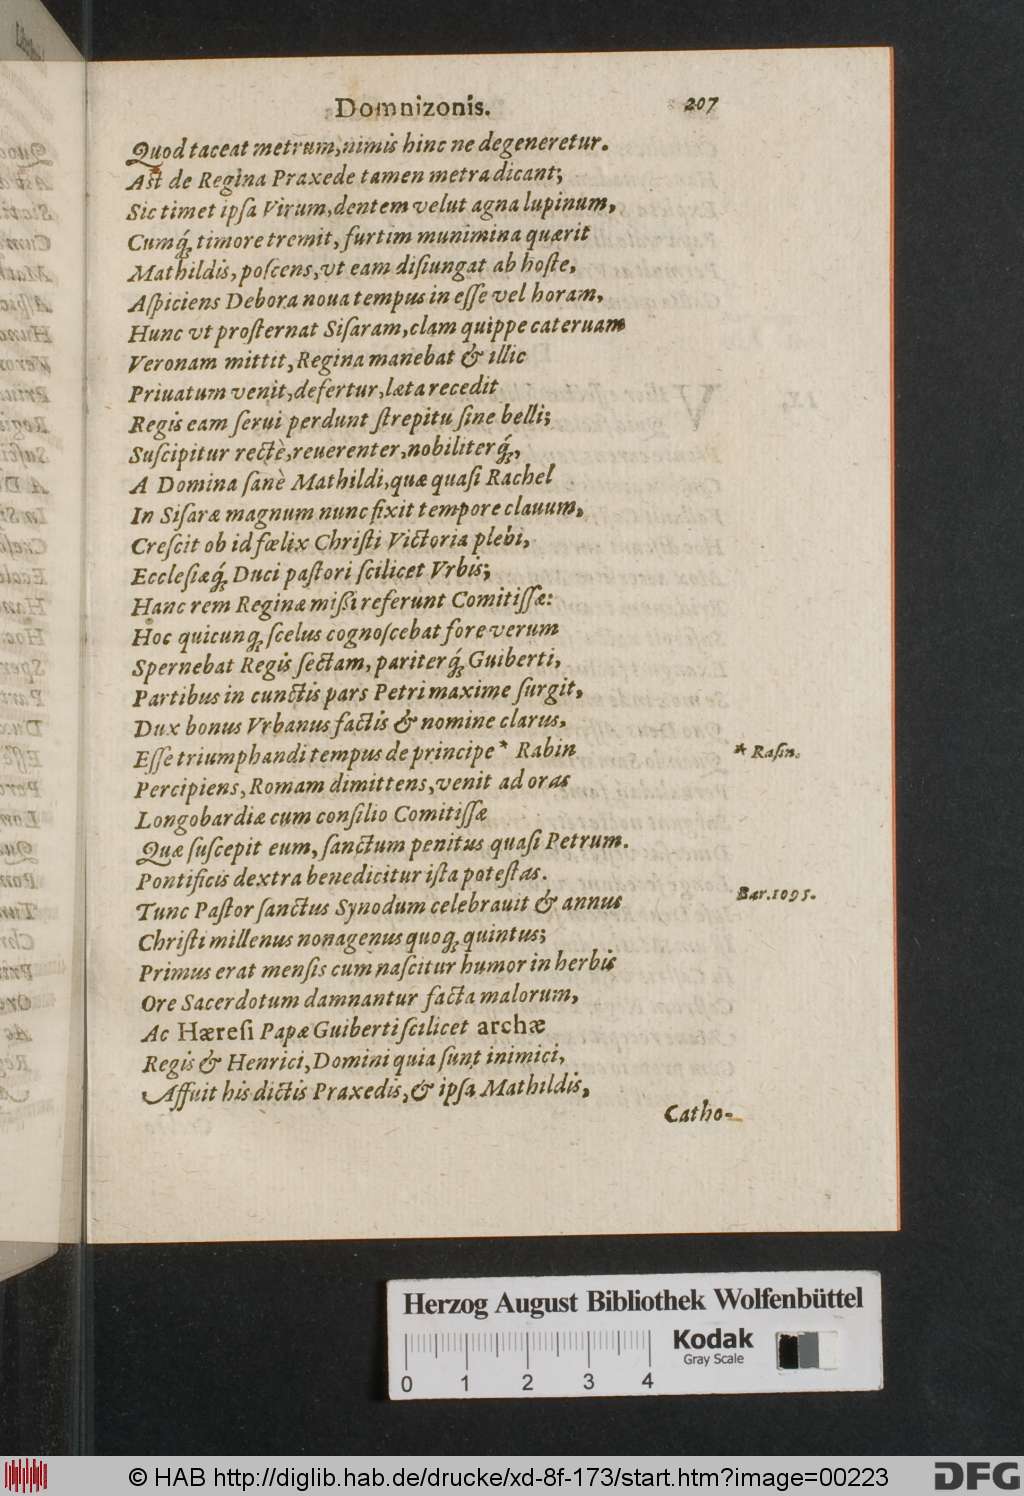 Domnizonis. 207
Quod taceat metrum, nimis hinc ne degeneretur.
Ast de Regina Praxede tamen metra dicant;
Sic timet ipſa Virum, dentem velut agna lupinum,
Cumq́; timore tremit, furtim munimina quærit
Mathildis, poſcens, vt eam diſiungat ab hoſte,
Aſpiciens Debora noua tempus in eſſe vel horam,
Hunc vt proſternat Siſaram, clam quippe cateruam
Veronam mittit, Regina manebat & illic
Priuatum venit, defertur, læta recedit
Regis eam ſerui perdunt ſtrepitu ſine belli;
Suſcipitur rectè, reuerenter, nobiliterq́;,
A Domina ſanè Mathildi, quæ quaſi Rachel
In Siſaræ magnum nunc fixit tempore clauum,
Creſcit ob id fœlix Chriſti Victoria plebi,
Eccleſiæq́; Duci paſtori ſcilicet Vrbis;
Hanc rem Reginæ miſsi referunt Comitiſſæ:
Hoc quicunq; ſcelus cognoſcebat fore verum
Spernebat Regis ſectam, pariterq́; Guiberti,
Partibus in cunctis pars Petri maxime ſurgit,
Dux bonus Vrbanus factis & nomine clarus,
Eſſe triumphandi tempus de principe* Rabin
* Raſin.
Percipiens, Romam dimittens, venit ad oras
Longobardiæ cum conſilio Comitiſſæ
Quæ ſuſcepit eum, ſanctum penitus quaſi Petrum.
Pontificis dextra benedicitur iſta poteſtas.
Tunc Paſtor ſanctus Synodum celebrauit & annus
Bar. 1095.
Chriſti millenus nonagenus quoq; quintus;
Primus erat menſis cum naſcitur humor in herbis
Ore Sacerdotum damnantur facta malorum,
Ac Hæreſi Papæ Guiberti ſcilicet archæ
Regis & Henrici, Domini quia ſunt inimici,
Affuit his dictis Praxedis, & ipſa Mathildis,
Catho-
Herzog August Bibliothek Wolfenbüttel
0 1 2 3 4
Kodak
Gray Scale
© HAB http://diglib.hab.de/drucke/xd-8f-173/start.htm?image=00223
DFG